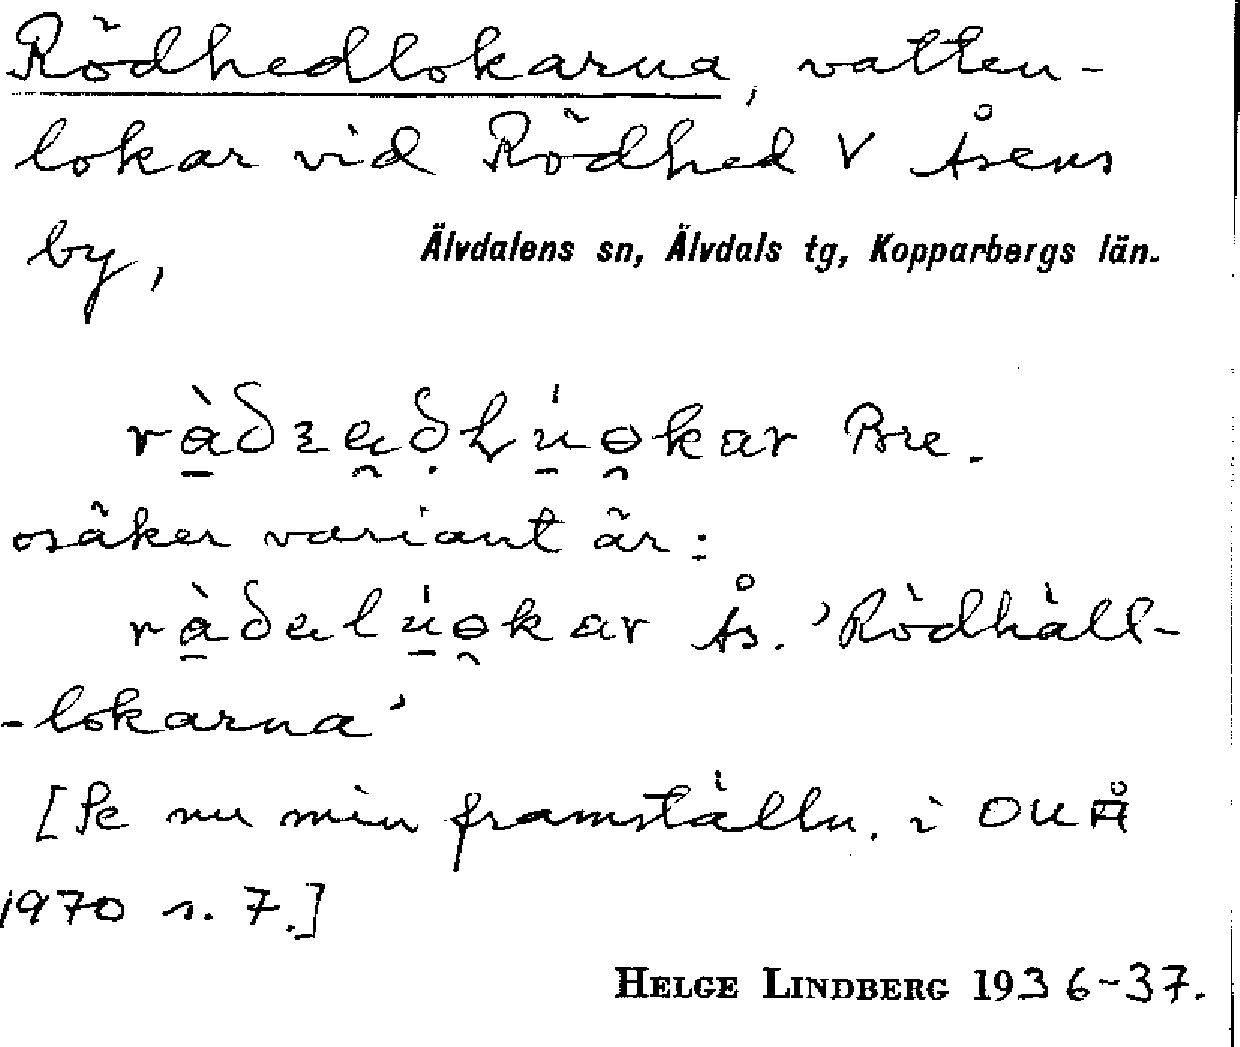 Rödhedlokarna, vatten-
lokar vid Rödhed V Åsens
by, Älvdalens sn, Älvdals tg, Kopparbergs län.
Bre.
osäker variant är:
Ås. 'Rödhäll-
-lokarna'
[Se nu min framställn. i OUÅ
1970 s. 7.]
HELGE LINDBERG 1936-37.